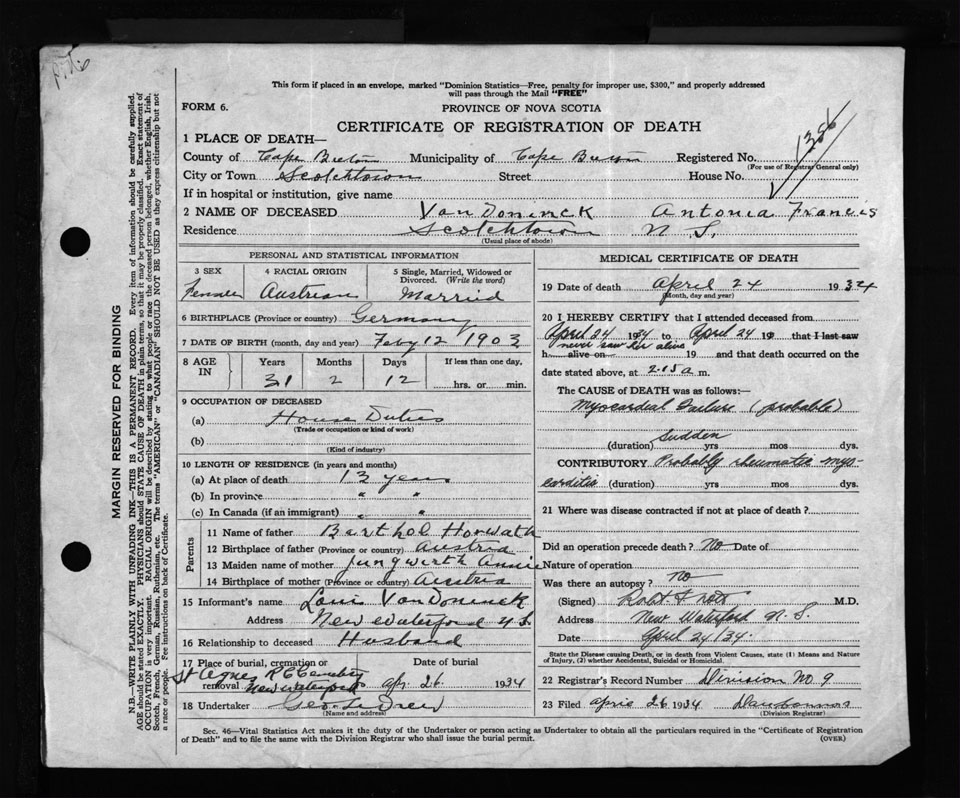 This form if placed in an envelope, marked "Dominion Statistics—Free, penalty for improper use, $300," and properly addressed
will pass through the Mail "FREE"
FORM 6.
PROVINCE OF NOVA SCOTIA
CERTIFICATE OF REGISTRATION OF DEATH
1 PLACE OF DEATH—
County of Cape Breton Municipality of Cape Breton Registered No. 1356
(For use of Registrar General only)
City or Town Scotchtown Street House No.
If in hospital or institution, give name
2 NAME OF DECEASED VanDoninck Antonia Francis
Residence Scotchtown N S.
(Usual place of abode)
PERSONAL AND STATISTICAL INFORMATION
3 SEX 4 RACIAL ORIGIN 5 Single, Married, Widowed or Divorced. (Write the word)
Female Austrian Married
6 BIRTHPLACE (Province or country) Germany
7 DATE OF BIRTH (month, day and year) Feby 12 1903
8 AGE IN Years Months Days If less than one day,
31 2 12 hrs. or min.
9 OCCUPATION OF DECEASED
(a) House Duties
(Trade or occupation or kind of work)
(b)
(Kind of industry)
10 LENGTH OF RESIDENCE (in years and months)
(a) At place of death 13 years
(b) In province " "
(c) In Canada (if an immigrant) " "
Parents
11 Name of father Barthol Horwath
12 Birthplace of father (Province or country) Austria
13 Maiden name of mother Jungwirth Annie
14 Birthplace of mother (Province or country) Austria
15 Informant's name Louis VanDoninck
Address New Waterford N S.
16 Relationship to deceased Husband
17 Place of burial, cremation or removal Date of burial
St Agnes R C Cemetery
New Waterford Apr. 26 1934
18 Undertaker Geo. Le Drew
(Name and address)
MEDICAL CERTIFICATE OF DEATH
19 Date of death April 24 1934
(Month, day and year)
20 I HEREBY CERTIFY that I attended deceased from
April 24 1934 to April 24 19 that I last saw
never saw her alive
h alive on 19 and that death occurred on the
date stated above, at 2.15 a m.
The CAUSE OF DEATH was as follows:—
Myocardial Failure (probable)
Sudden
(duration) yrs mos dys.
CONTRIBUTORY Probably rheumatic myo-
carditis (duration) yrs mos dys.
21 Where was disease contracted if not at place of death?
Did an operation precede death? No Date of
Nature of operation
Was there an autopsy? no
(Signed) M.D.
Address New Waterford N. S.
Date April 24/34.
State the Disease causing Death, or in death from Violent Causes, state (1) Means and Nature
of Injury, (2) whether Accidental, Suicidal or Homicidal.
22 Registrar's Record Number Division No 9
23 Filed April 26 1934
(Division Registrar)
Sec. 46—Vital Statistics Act makes it the duty of the Undertaker or person acting as Undertaker to obtain all the particulars required in the "Certificate of Registration
of Death" and to file the same with the Division Registrar who shall issue the burial permit.
(OVER)
MARGIN RESERVED FOR BINDING
N.B.—WRITE PLAINLY WITH UNFADING INK—THIS IS A PERMANENT RECORD. Every item of information should be carefully supplied.
AGE should be stated EXACTLY. PHYSICIANS should STATE CAUSE OF DEATH in plain terms, so that it may be properly classified. Exact statement of
OCCUPATION is very important. RACIAL ORIGIN will be described by stating to what people or race the deceased person belonged, whether English, Irish,
Scotch, French, German, Russian, Ruthenian, etc. The terms "AMERICAN" or "CANADIAN" SHOULD NOT BE USED as they express citizenship but not
a race or people. See instructions on back of Certificate.